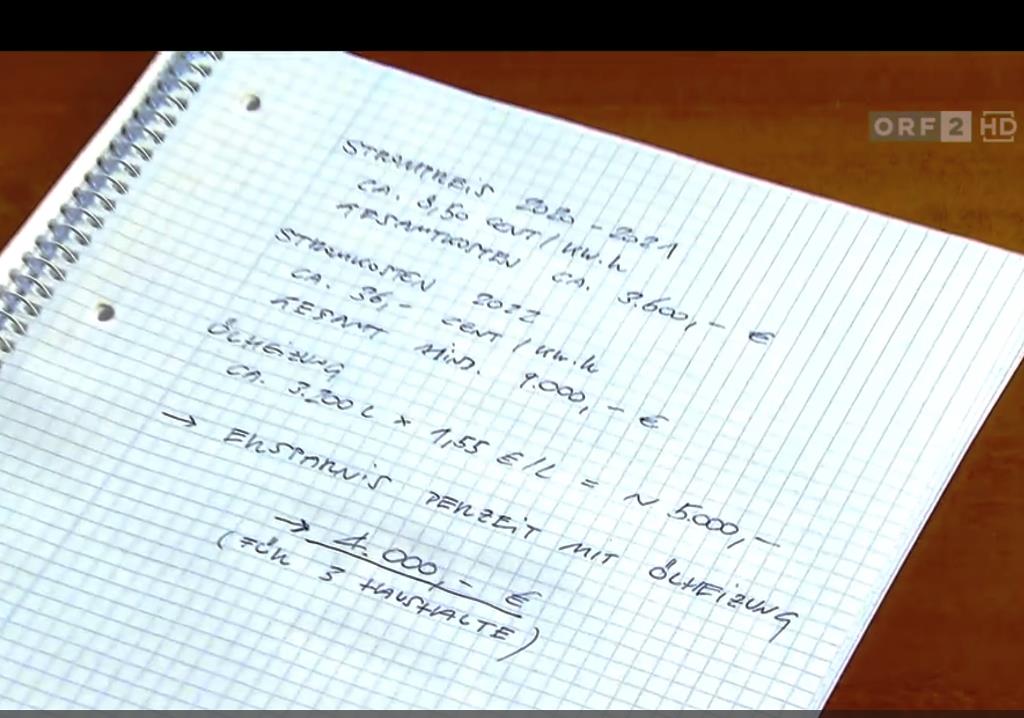 STROMPREIS 2020 - 2021
CA. 8,50 CENT / KW.h
GESAMTKOSTEN CA. 3.600,- €
STROMKOSTEN 2022
CA. 36,- CENT / KW.h
GESAMT MIND. 9.000,- €
ÖLHEIZUNG
CA. 3.200 L × 1,55 €/L = ~ 5.000,-
→ ERSPARNIS DERZEIT MIT ÖLHEIZUNG
→ 4.000,- €
(FÜR 3 HAUSHALTE)
ORF 2 HD